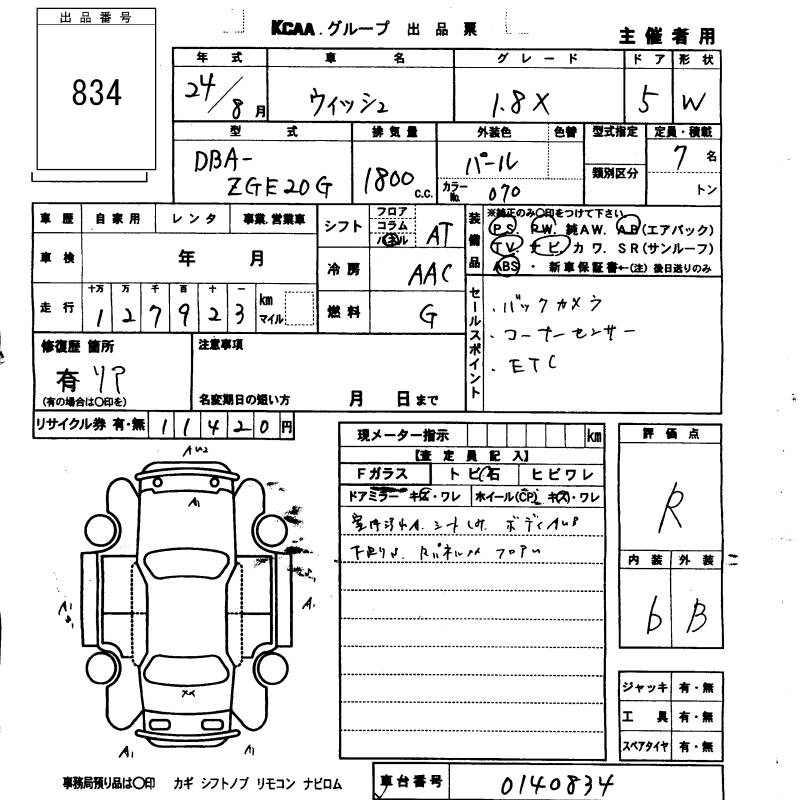 出品番号
834
KCAA.グループ 出品票
主催者用
年式 車名 グレード ドア 形状
24/8月 ウィッシュ 1.8X 5 W
型式 排気量 外装色 色替 型式指定 定員・積載
DBA-ZGE20G 1800c.c. パール 類別区分 7名
カラーNo. 070 トン
車歴 自家用 レンタ 事業.営業車
シフト フロア コラム パネル AT
装備品 ※純正のみ○印をつけて下さい
PS. PW. 純AW. AB(エアバック)
TV. ナビ. カワ. SR(サンルーフ)
ABS ・ 新車保証書←(注) 後日送りのみ
車検 年 月
冷房 AAC
走行 十万 万 千 百 十 一 km マイル
127923
燃料 G
セールスポイント
・バックカメラ
・コーナーセンサー
・ETC
修復歴 箇所
有 リア
(有の場合は○印を)
注意事項
名変期日の短い方 月 日まで
リサイクル券 有・無 11420円
現メーター指示 km
【査定員記入】
Fガラス トビ石 ヒビワレ
ドアミラー キズ・ワレ ホイール(CP) キズ・ワレ
評価点
R
内装 外装
6 B
A1
A1
A1
A1
ジャッキ 有・無
工具 有・無
スペアタイヤ 有・無
事務局預り品は○印 カギ シフトノブ リモコン ナビロム
車台番号 0140834